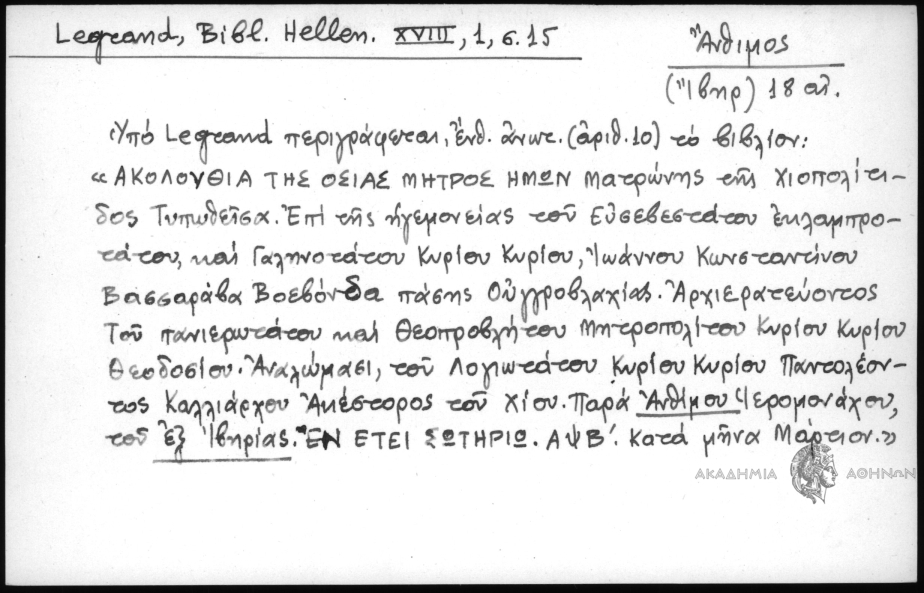 Legrand, Bibl. Hellen. XVIII, 1, σ. 15
Ἄνθιμος
(Ἴβηρ) 18 αἰ.
Ὑπό Legrand περιγράφεται, ἔνθ. ἀνωτ. (ἀριθ. 10) τό βιβλίον:
«ΑΚΟΛΟΥΘΙΑ ΤΗΣ ΟΣΙΑΣ ΜΗΤΡΟΣ ΗΜΩΝ Ματρώνης τῆς Χιοπολίτι-
δος Τυπωθεῖσα. Ἐπί τῆς ἡγεμονείας τοῦ Εὐσεβεστάτου ἐκλαμπρο-
τάτου, καί Γαληνοτάτου Κυρίου Κυρίου, Ἰωάννου Κωνσταντίνου
Βασσαράβα Βοεβόνδα πάσης Οὐγγροβλαχίας. Ἀρχιερατεύοντος
Τοῦ πανιερωτάτου καί Θεοπροβλήτου Μητροπολίτου Κυρίου Κυρίου
Θεοδοσίου. Ἀναλώμασι, τοῦ Λογιωτάτου Κυρίου Κυρίου Παντολέον-
τος Καλλιάρχου Ἀκέστορος τοῦ Χίου. Παρά Ἀνθίμου Ἱερομονάχου,
τοῦ ἐξ Ἰβηρίας. ἘΝ ΕΤΕΙ ΣΩΤΗΡΙΩ. ΑΨΒ΄. Κατά μῆνα Μάρτιον.»
ΑΚΑΔΗΜΙΑ ΑΘΗΝΩΝ